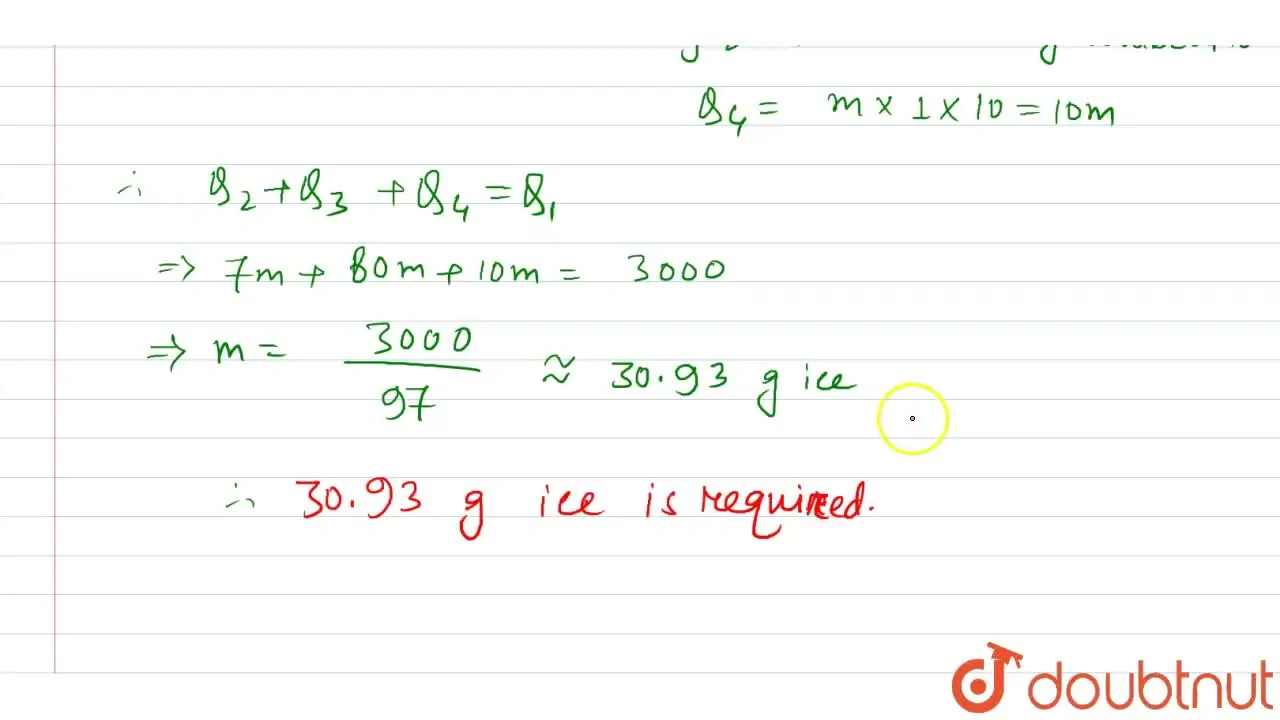 Q₄ = m × 1 × 10 = 10m
∴ Q₂ + Q₃ + Q₄ = Q₁
=> 7m + 80m + 10m = 3000
=> m = 3000/97 ≈ 30.93 g ice
∴ 30.93 g ice is required.
doubtnut